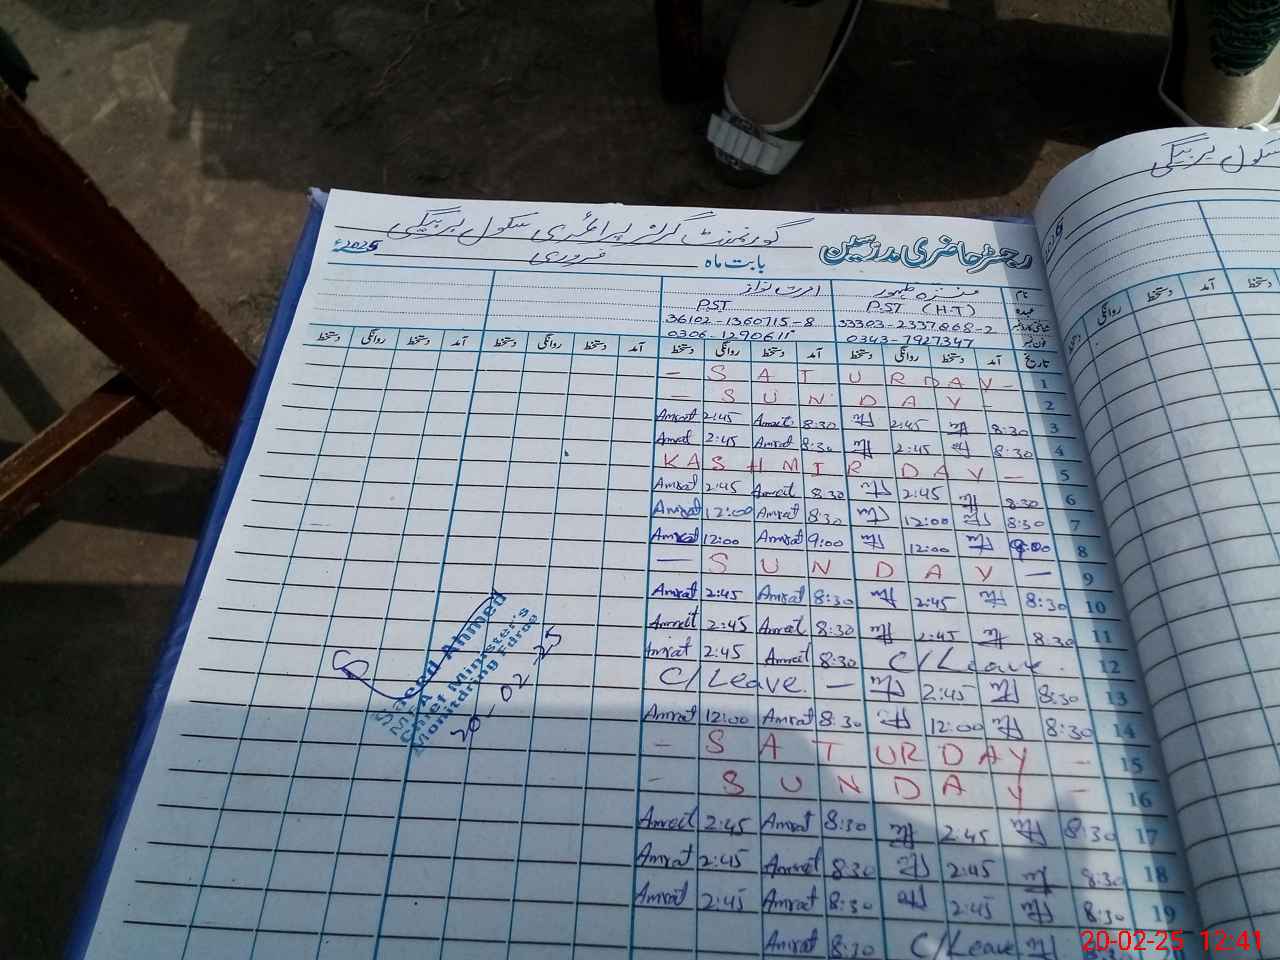 گورنمنٹ گرلز پرائمری سکول بربیگی
رجسٹر حاضری مدرسین
بابت ماہ فروری 2025ء
نام
عہدہ
P.ST (H.T)
33303-2337868-2
0343-7927347
امرت نواز
P.ST
36102-1360715-8
0306-1290611
تاریخ آمد دستخط روانگی دستخط آمد دستخط روانگی دستخط آمد دستخط روانگی دستخط آمد دستخط روانگی دستخط
— S A T U R D A Y — 1
— S U N D A Y — 2
Amrat 2:45 Amrat 8:30 2:45 8:30 3
Amrat 2:45 Amrat 8:30 2:45 8:30 4
K A S H M I R D A Y — 5
Amrat 2:45 Amrat 8:30 2:45 8:30 6
Amrat 12:00 Amrat 8:30 12:00 8:30 7
Amrat 12:00 Amrat 9:00 12:00 9:00 8
— S U N D A Y — 9
Amrat 2:45 Amrat 8:30 2:45 8:30 10
Amrat 2:45 Amrat 8:30 2:45 8:30 11
Amrat 2:45 Amrat 8:30 C/Leave. 12
C/Leave. — 2:45 8:30 13
Amrat 12:00 Amrat 8:30 12:00 8:30 14
— S A T U R D A Y — 15
— S U N D A Y — 16
Amrat 2:45 Amrat 8:30 2:45 8:30 17
Amrat 2:45 Amrat 8:30 2:45 8:30 18
Amrat 2:45 Amrat 8:30 2:45 8:30 19
Amrat 8:30 C/Leave 20
Saeed Ahmed
MEA
Chief Minister's
Monitoring Force
20-02-25
سکول بربیگی
آمد دستخط روانگی دستخط
20-02-25 12:41